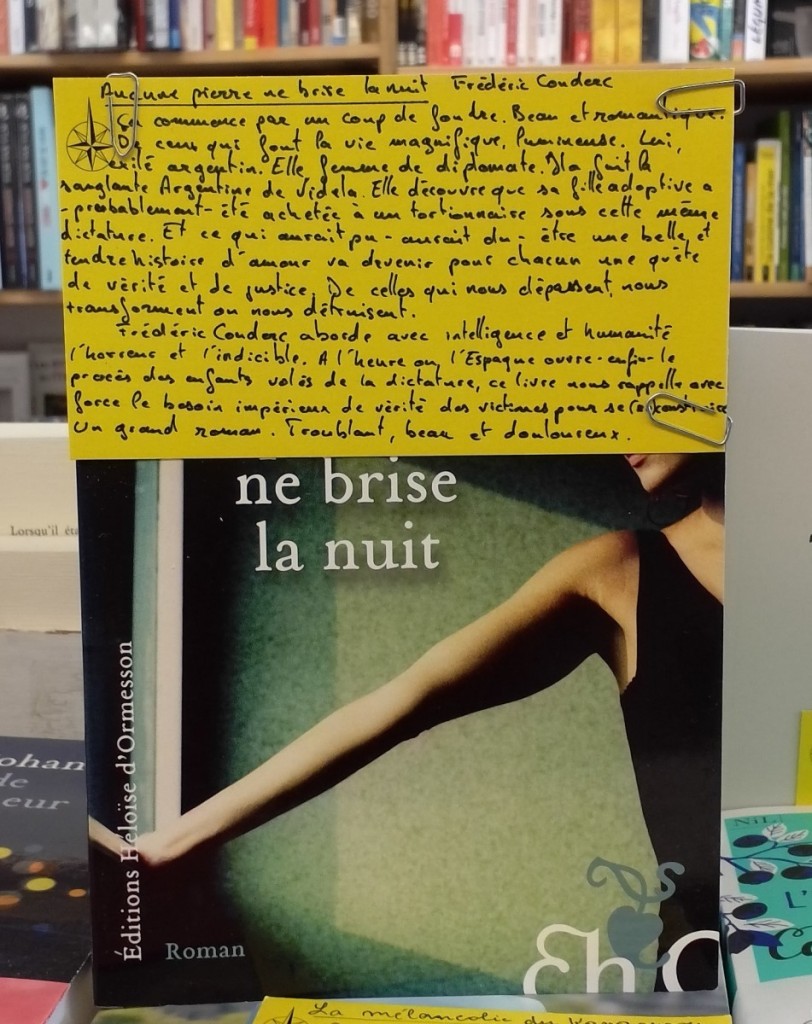 LÉGUM
Aucune pierre ne brise la nuit Frédéric Couderc
Ça commence par un coup de foudre. Beau et romantique.
De ceux qui font la vie magnifique, lumineuse. Lui,
exilé argentin. Elle, femme de diplomate. Il a fui la
sanglante Argentine de Videla. Elle découvre que sa fille adoptive a
-probablement- été achetée à un tortionnaire sous cette même
dictature. Et ce qui aurait pu - aurait dû - être une belle et
tendre histoire d'amour va devenir pour chacun une quête
de vérité et de justice. De celles qui nous dépassent, nous
transforment ou nous détruisent.
Frédéric Couderc aborde avec intelligence et humanité
l'horreur et l'indicible. A l'heure ou l'Espagne ouvre -enfin- le
procès des enfants volés de la dictature, ce livre nous rappelle avec
force le besoin impérieux de vérité des victimes pour se (re)construire
Un grand roman. Troublant, beau et douloureux.
ne brise
la nuit
Lorsqu'il éta
Éditions Héloïse d'Ormesson
Roman
EhO
ohan
de
eur
NiL
L'
La mélancolie du